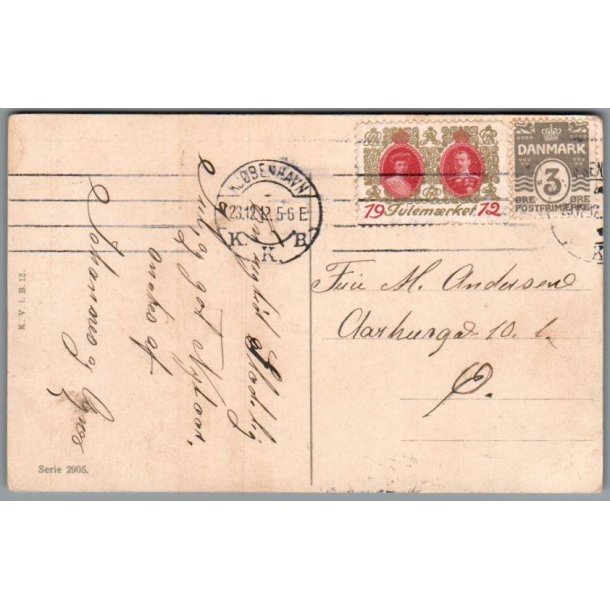 KJØBENHAVN
23.12.12.5-6 E
K. K. B.
19 Julemærket. 12
DANMARK
3
ØRE ØRE
POSTFRIMÆRKE
Glædelig
Jul og got Nytaar,
ønskes af
Johannes og
Frü M. Andersen
Aarhusgad 10. 1.
Ø.
K. V. i. B. 12.
Serie 2905.